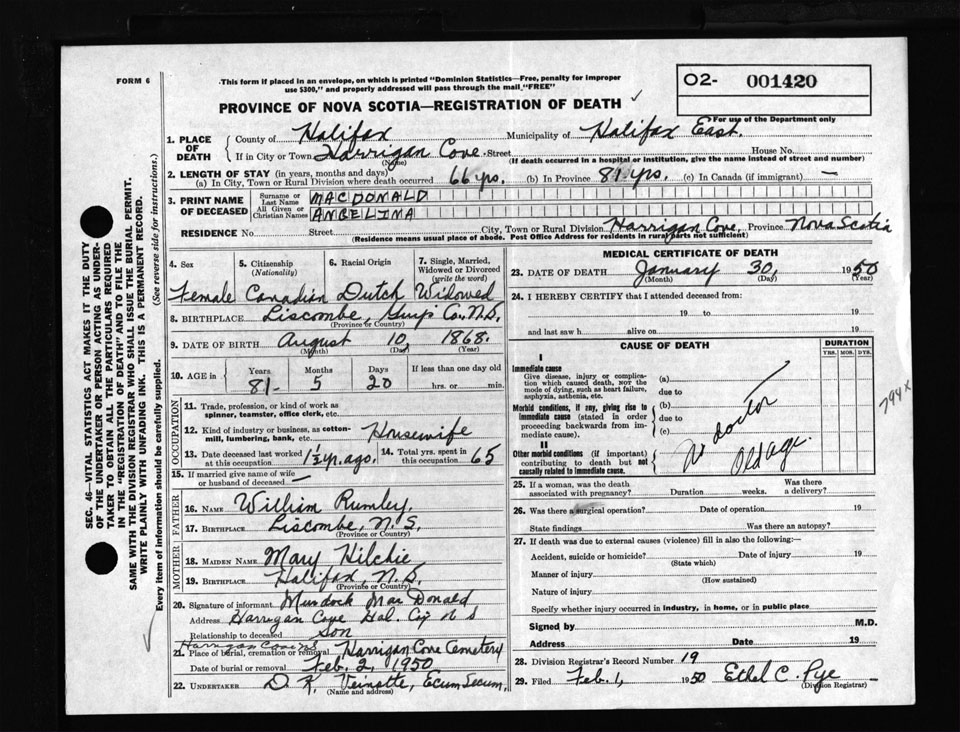 FORM 6
This form if placed in an envelope, on which is printed "Dominion Statistics—Free, penalty for improper
use $300," and properly addressed will pass through the mail "FREE"
O2- 001420
PROVINCE OF NOVA SCOTIA—REGISTRATION OF DEATH ✓
For use of the Department only
1. PLACE OF DEATH { County of Halifax Municipality of Halifax East.
If in City or Town Harrigan Cove Street House No.
(Name) (If death occurred in a hospital or institution, give the name instead of street and number)
2. LENGTH OF STAY (in years, months and days)
(a) In City, Town or Rural Division where death occurred 66 yrs. (b) In Province 81 yrs. (c) In Canada (if immigrant) —
3. PRINT NAME OF DECEASED { Surname or Last Name MACDONALD
All Given or Christian Names ANGELINA
RESIDENCE No. Street City, Town or Rural Division Harrigan Cove, Province Nova Scotia
(Residence means usual place of abode. Post Office Address for residents in rural parts not sufficient)
4. Sex 5. Citizenship (Nationality) 6. Racial Origin 7. Single, Married, Widowed or Divorced (write the word)
Female Canadian Dutch Widowed
8. BIRTHPLACE Liscombe, Guys Co. N.S.
(Province or Country)
9. DATE OF BIRTH August 10, 1868.
(Month) (Day) (Year)
10. AGE in { Years Months Days If less than one day old
81 5 20 hrs. or min.
OCCUPATION
11. Trade, profession, or kind of work as
spinner, teamster, office clerk, etc.
12. Kind of industry or business, as cotton-
mill, lumbering, bank, etc. Housewife
13. Date deceased last worked at this occupation 1½ yr. ago. 14. Total yrs. spent in this occupation 65
15. If married give name of wife
or husband of deceased —
FATHER
16. NAME William Rumley.
17. BIRTHPLACE Liscombe, N.S.
(Province or Country)
MOTHER
18. MAIDEN NAME Mary Hilchie
19. BIRTHPLACE Halifax, N.S.
(Province or Country)
20. Signature of informant Murdock MacDonald
Address Harrigan Cove Hal. Co. N S
Relationship to deceased son
21. Place of burial, cremation or removal Harrigan Cove Cemetery
Date of burial or removal Feb. 2, 1950
22. UNDERTAKER D. K. Veinotte, Ecum Secum,
(Name and address)
MEDICAL CERTIFICATE OF DEATH
23. DATE OF DEATH January 30, 1950
(Month) (Day) (Year)
24. I HEREBY CERTIFY that I attended deceased from:
19 to 19
and last saw h alive on 19
CAUSE OF DEATH DURATION
YRS. MOS. DYS.
I
Immediate cause
Give disease, injury or complication which caused death, NOT the mode of dying, such as heart failure, asphyxia, asthenia, etc.
(a)
due to
Morbid conditions, if any, giving rise to immediate cause (stated in order proceeding backwards from immediate cause).
(b)
due to
(c)
II
Other morbid conditions (if important) contributing to death but not causally related to immediate cause.
No doctor
Old age.
794 x
25. If a woman, was the death associated with pregnancy? Duration weeks. Was there a delivery?
26. Was there a surgical operation? Date of operation 19
State findings Was there an autopsy?
27. If death was due to external causes (violence) fill in also the following:—
Accident, suicide or homicide? Date of injury 19
(State which)
Manner of injury
(How sustained)
Nature of injury
Specify whether injury occurred in industry, in home, or in public place
Signed by M.D.
Address Date 19
28. Division Registrar's Record Number 19
29. Filed Feb. 1, 1950 Ethel C. Pye
(Division Registrar)
SEC. 46—VITAL STATISTICS ACT MAKES IT THE DUTY
OF THE UNDERTAKER OR PERSON ACTING AS UNDER-
TAKER TO OBTAIN ALL THE PARTICULARS REQUIRED
IN THE "REGISTRATION OF DEATH" AND TO FILE THE
SAME WITH THE DIVISION REGISTRAR WHO SHALL ISSUE THE BURIAL PERMIT.
WRITE PLAINLY WITH UNFADING INK. THIS IS A PERMANENT RECORD.
Every item of information should be carefully supplied. (See reverse side for instructions.)